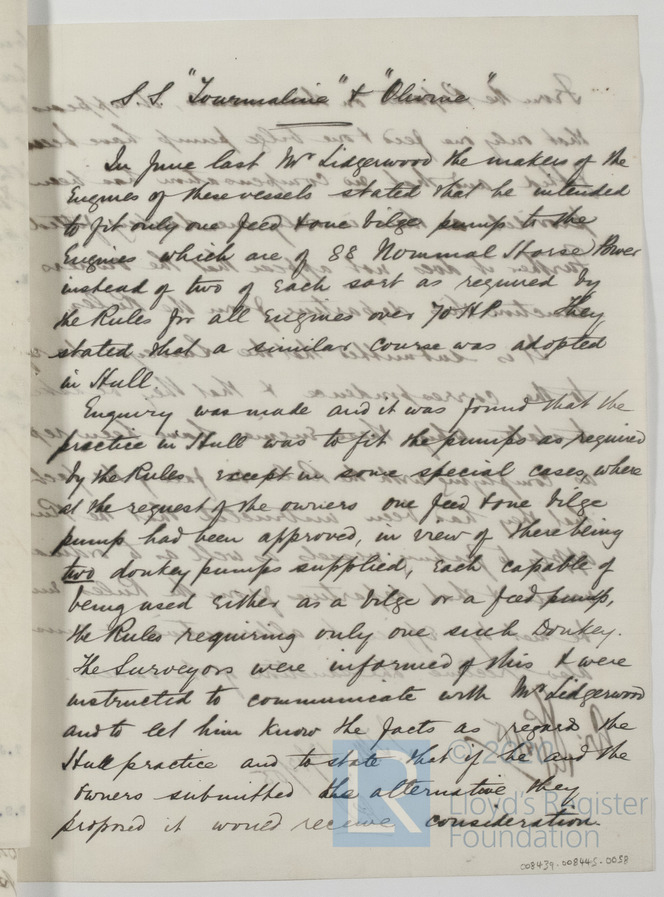 S.S. "Tourmaline" & "Olivine"
In June last Mr Lidgerwood the makers of the
Engines of these vessels stated that he intended
to fit only one feed & one bilge pump to the
Engines which are of 88 Nominal Horse Power
instead of two of each sort as required by
the Rules for all Engines over 70 HP. They
stated that a similar course was adopted
in Hull.
Enquiry was made and it was found that the
practice in Hull was to fit the pumps as required
by the Rules except in some special cases, where
at the request of the owners one feed & one bilge
pump had been approved, in view of there being
two donkey pumps supplied, each capable of
being used either as a bilge or a feed pump,
the Rules requiring only one such Donkey.
The Surveyors were informed of this & were
instructed to communicate with Mr Lidgerwood
and to let him know the facts as regard the
Hull practice and to state that if he and the
owners submitted the alternative they
proposed it would receive consideration.
© 20
Lloyd's Register
Foundation
008439-008445-0058